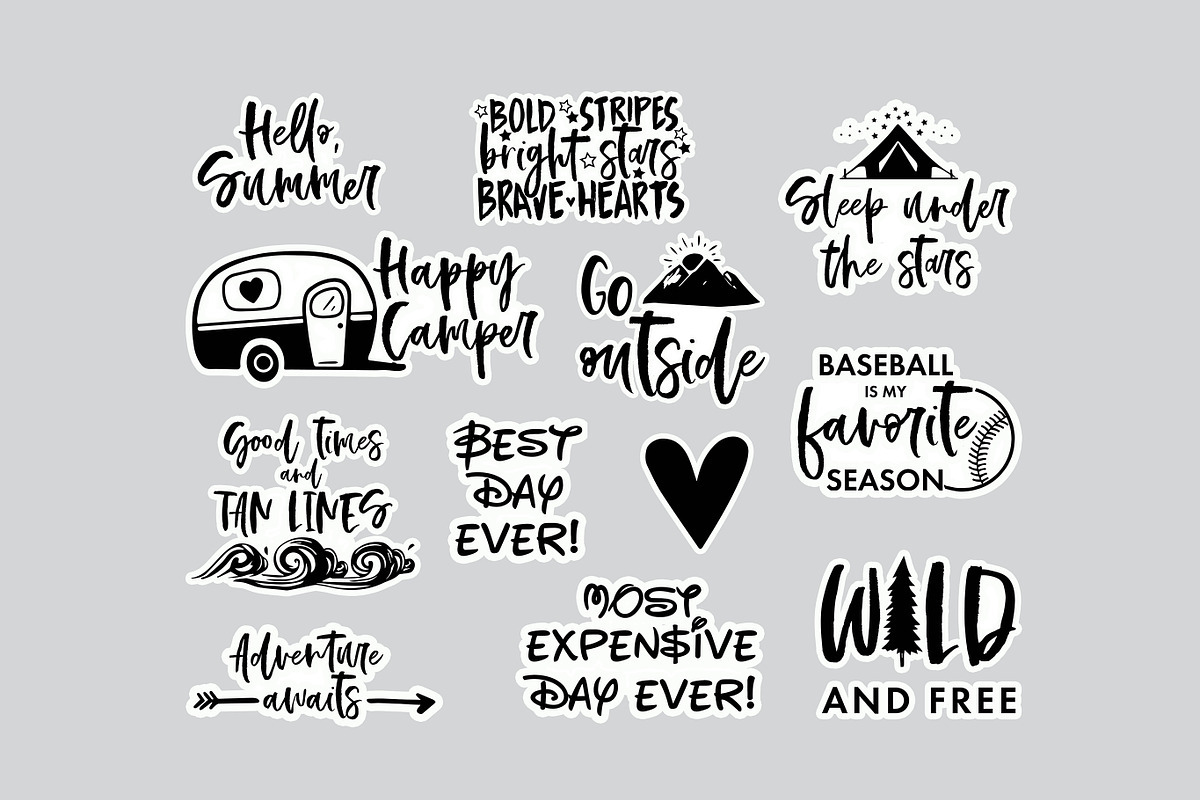 Hello,
Summer
BOLD STRIPES
bright stars
BRAVE HEARTS
Sleep under
the stars
Happy
Camper
Go
outside
BASEBALL
IS MY
favorite
SEASON
Good times
and
TAN LINES
BEST
DAY
EVER!
MOST
EXPEN$IVE
DAY EVER!
WILD
AND FREE
Adventure
awaits